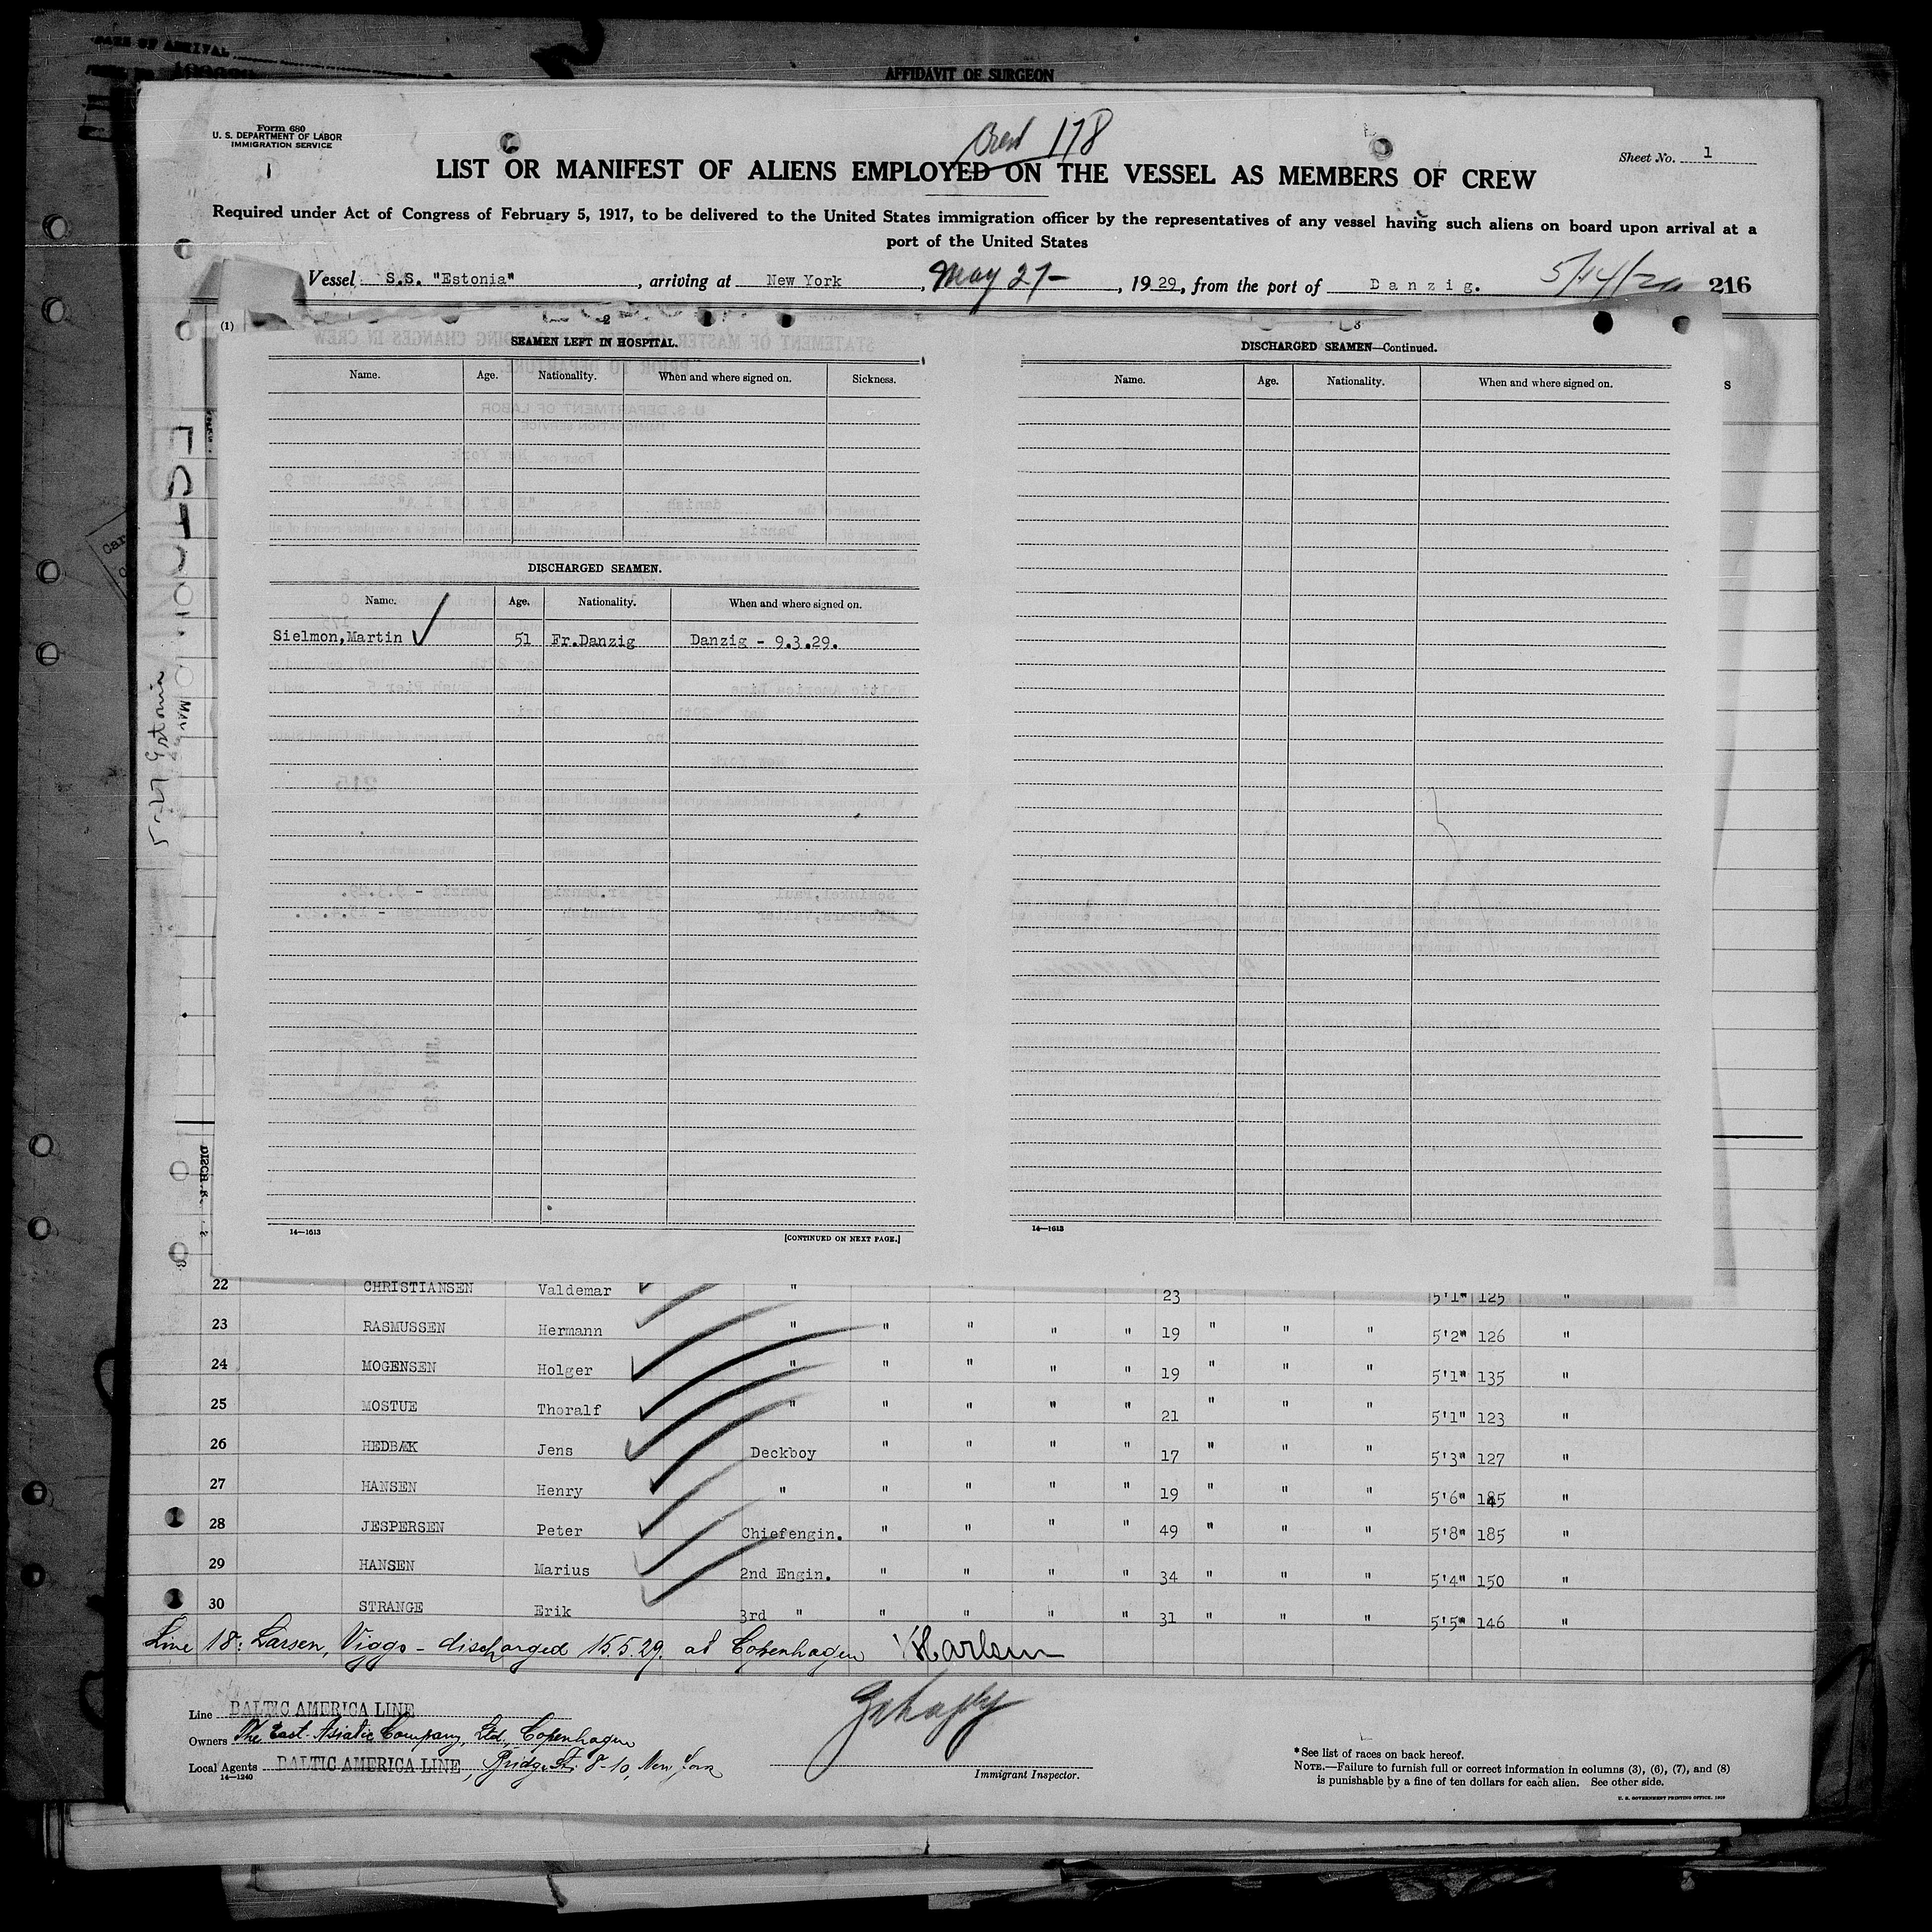 AFFIDAVIT OF SURGEON
Form 680
U. S. DEPARTMENT OF LABOR
IMMIGRATION SERVICE
1
Crew 178
Sheet No. 1
LIST OR MANIFEST OF ALIENS EMPLOYED ON THE VESSEL AS MEMBERS OF CREW
Required under Act of Congress of February 5, 1917, to be delivered to the United States immigration officer by the representatives of any vessel having such aliens on board upon arrival at a
port of the United States
Vessel S.S. "Estonia" , arriving at New York , May 27- , 19 29, from the port of Danzig. 5/14/29 216
(1)
2
SEAMEN LEFT IN HOSPITAL.
Name. Age. Nationality. When and where signed on. Sickness.
DISCHARGED SEAMEN.
Name. Age. Nationality. When and where signed on.
Sielmon,Martin 51 Fr.Danzig Danzig - 9.3.29.
14—1613 [CONTINUED ON NEXT PAGE.]
3
DISCHARGED SEAMEN—Continued.
Name. Age. Nationality. When and where signed on.
14—1613
5-27 Estonia
22 CHRISTIANSEN Valdemar " 23 5'1" 125 "
23 RASMUSSEN Hermann " " " " " 19 " " " 5'2" 126 "
24 MOGENSEN Holger " " " " " 19 " " " 5'1" 135 "
25 MOSTUE Thoralf " " " " " 21 " " " 5'1" 123 "
26 HEDBÆK Jens Deckboy " " " " 17 " " " 5'3" 127 "
27 HANSEN Henry " " " " " 19 " " " 5'6" 145 "
28 JESPERSEN Peter Chiefengin. " " " " 49 " " " 5'8" 185 "
29 HANSEN Marius 2nd Engin. " " " " 34 " " " 5'4" 150 "
30 STRANGE Erik 3rd " " " " " 31 " " " 5'5" 146 "
Line 18: Larsen, Viggo - discharged 15.5.29. at Copenhagen
Line BALTIC AMERICA LINE
Owners The East Asiatic Company, Ltd., Copenhagen
Local Agents BALTIC AMERICA LINE, Bridge St. 8-10, New York
14—1240
Immigrant Inspector.
* See list of races on back hereof.
NOTE.—Failure to furnish full or correct information in columns (3), (6), (7), and (8)
is punishable by a fine of ten dollars for each alien. See other side.
U. S. GOVERNMENT PRINTING OFFICE. 1929